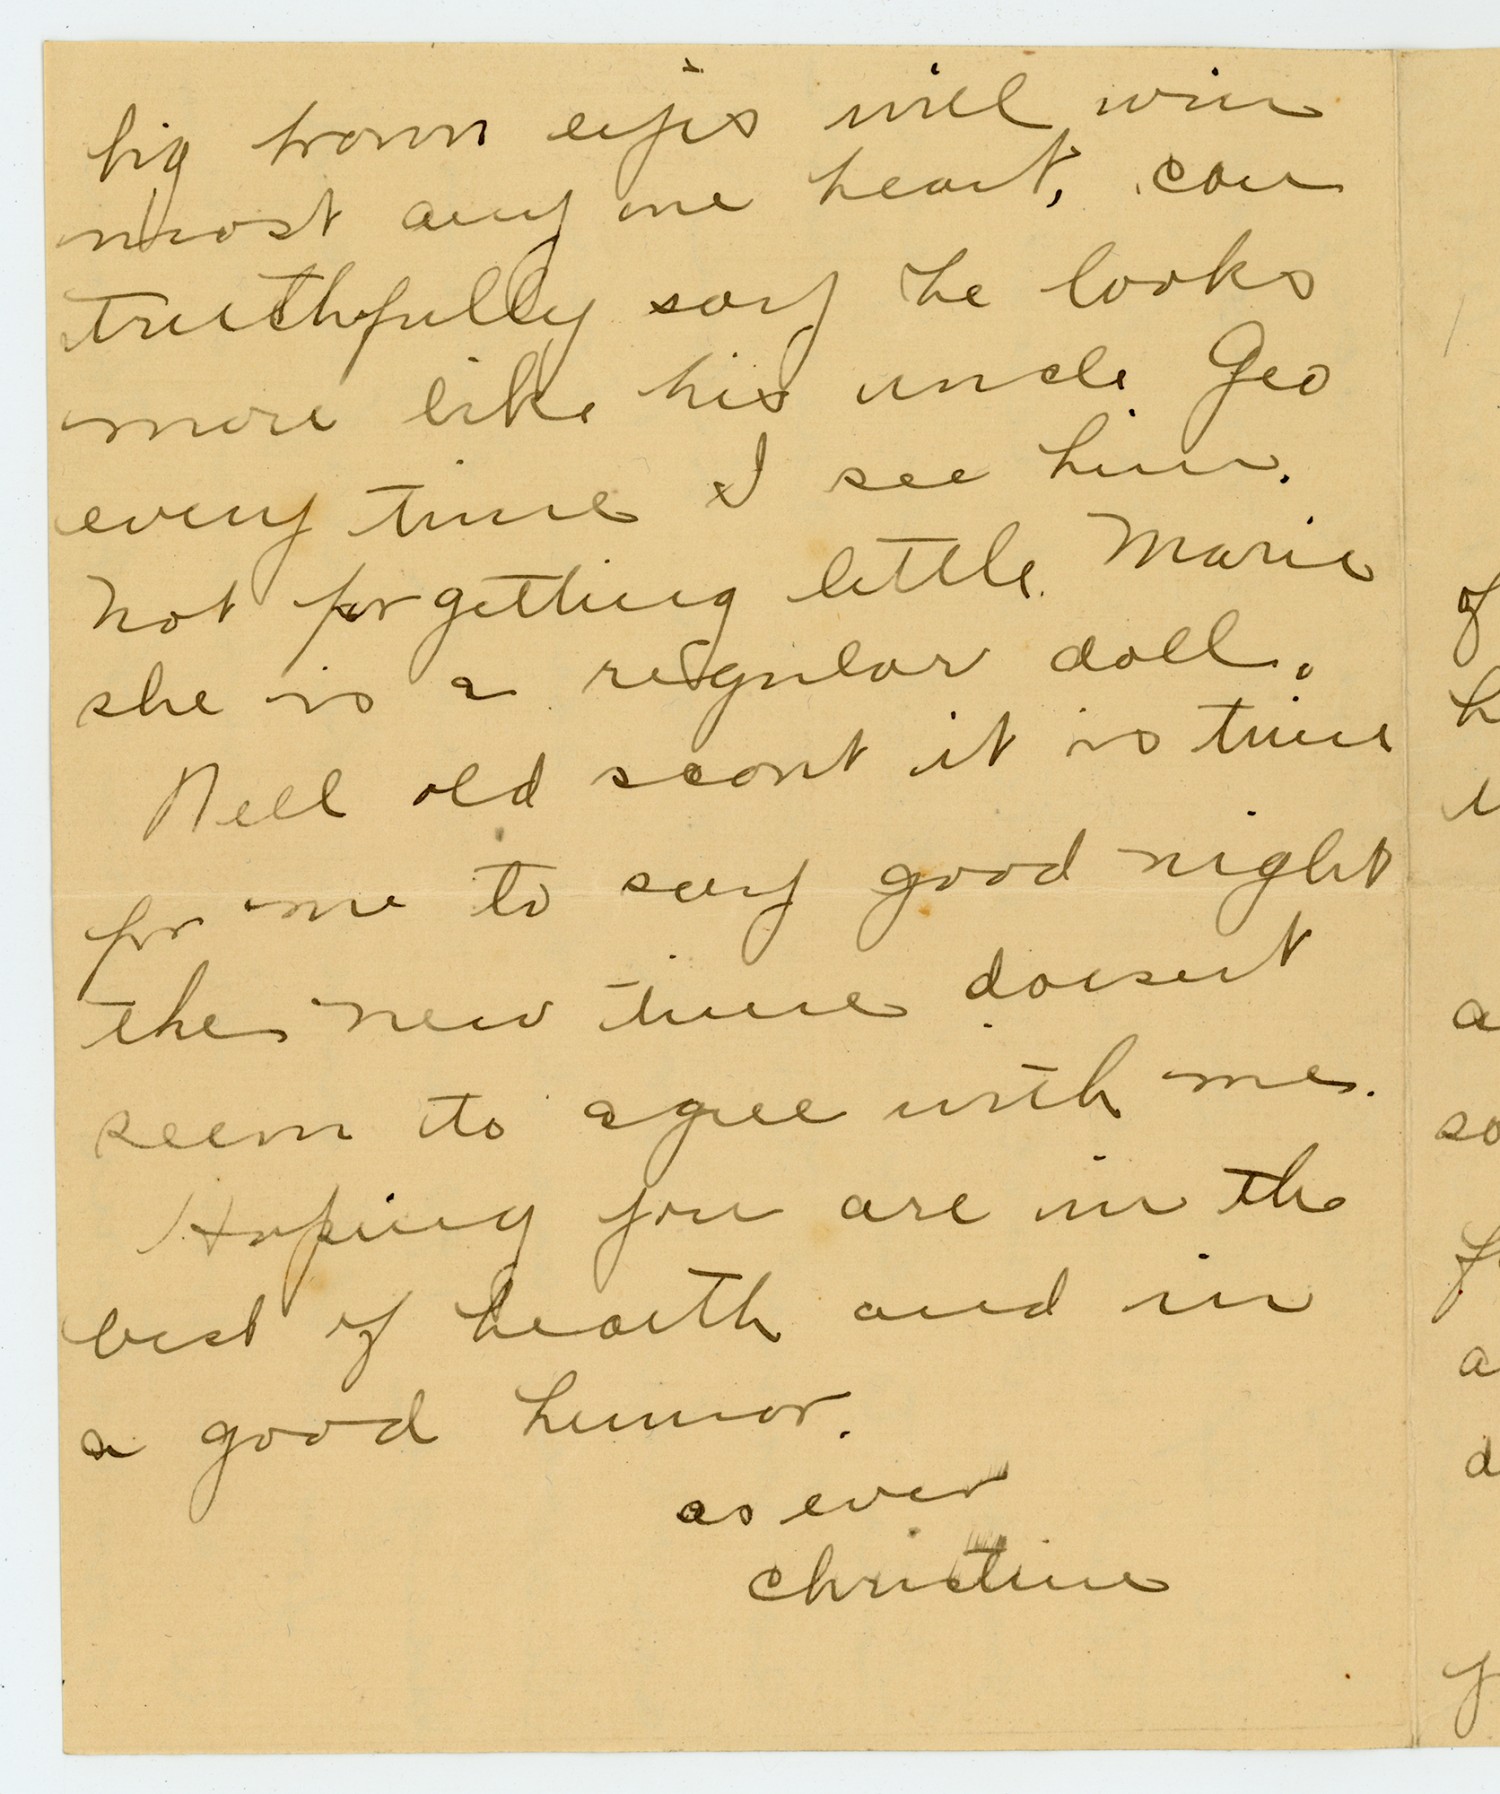 big brown eyes will win
most any one heart, can
truthfully say he looks
more like his uncle Geo
every time I see him.
Not forgetting little Marie
she is a regular doll.
Well old scout it is time
for me to say good night
the new time doesent
seem to agree with me.
Hoping you are in the
best of health and in
a good humor.
as ever
Christine
of
a
so
a
d